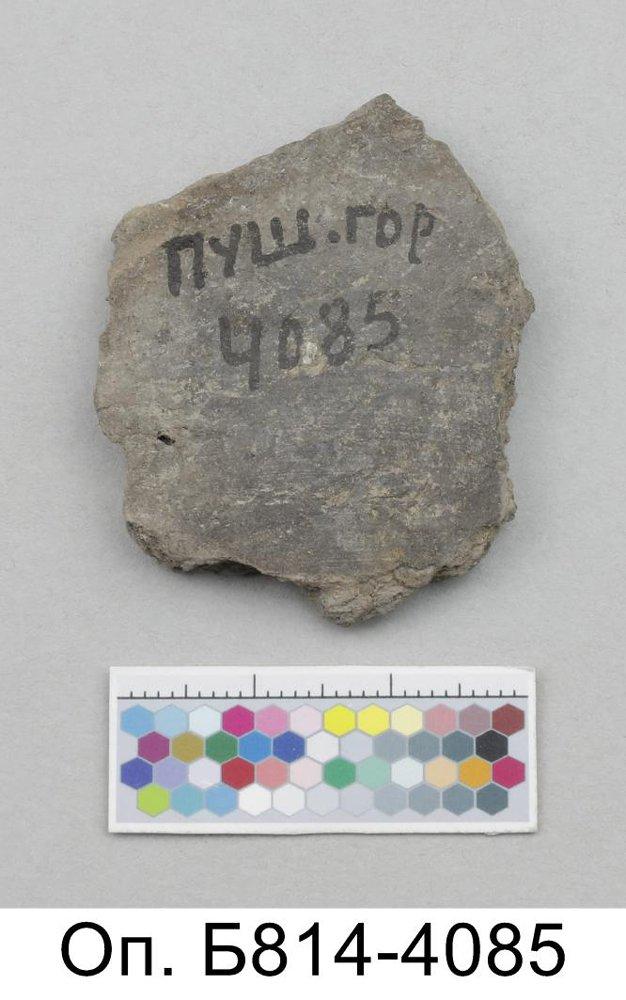 пуш.гор
4085
Оп. Б814-4085